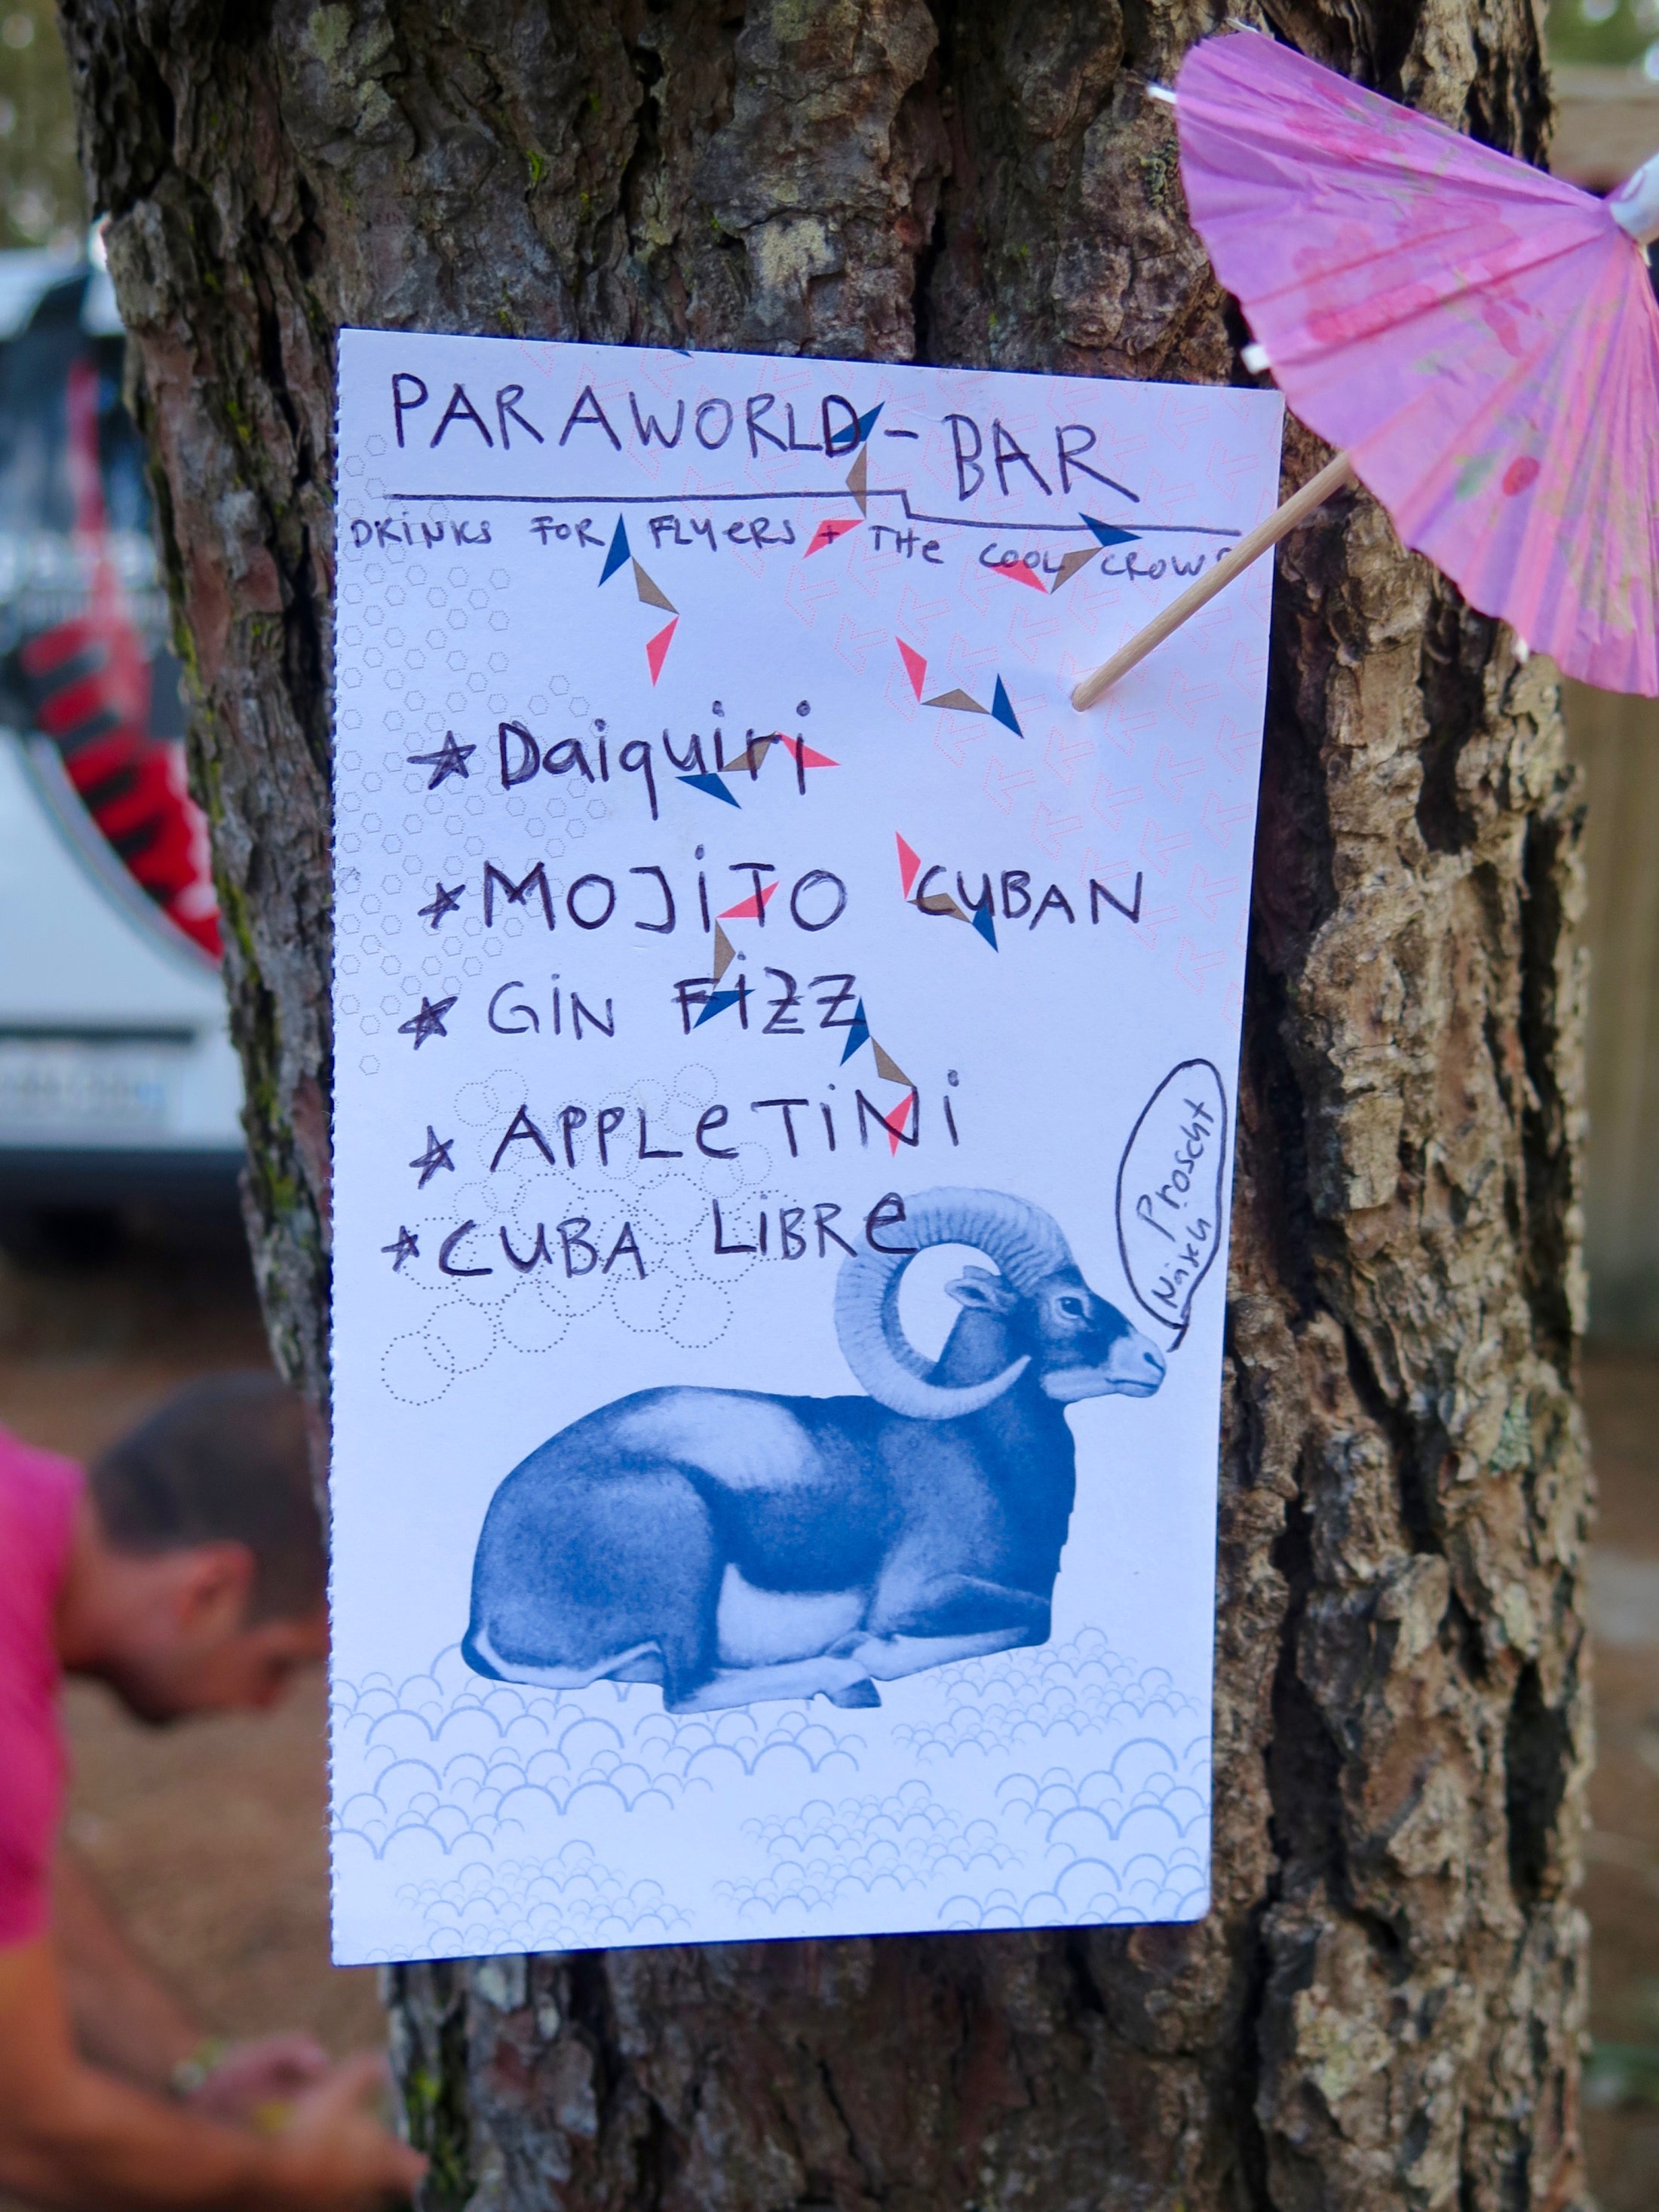 PARAWORLD - BAR
DRINKS FOR FLYERS + THE COOL CROWD
★ Daiquiri
★ MOJITO CUBAN
★ GIN FIZZ
★ APPLETINI
★ CUBA LIBRE
Proscht